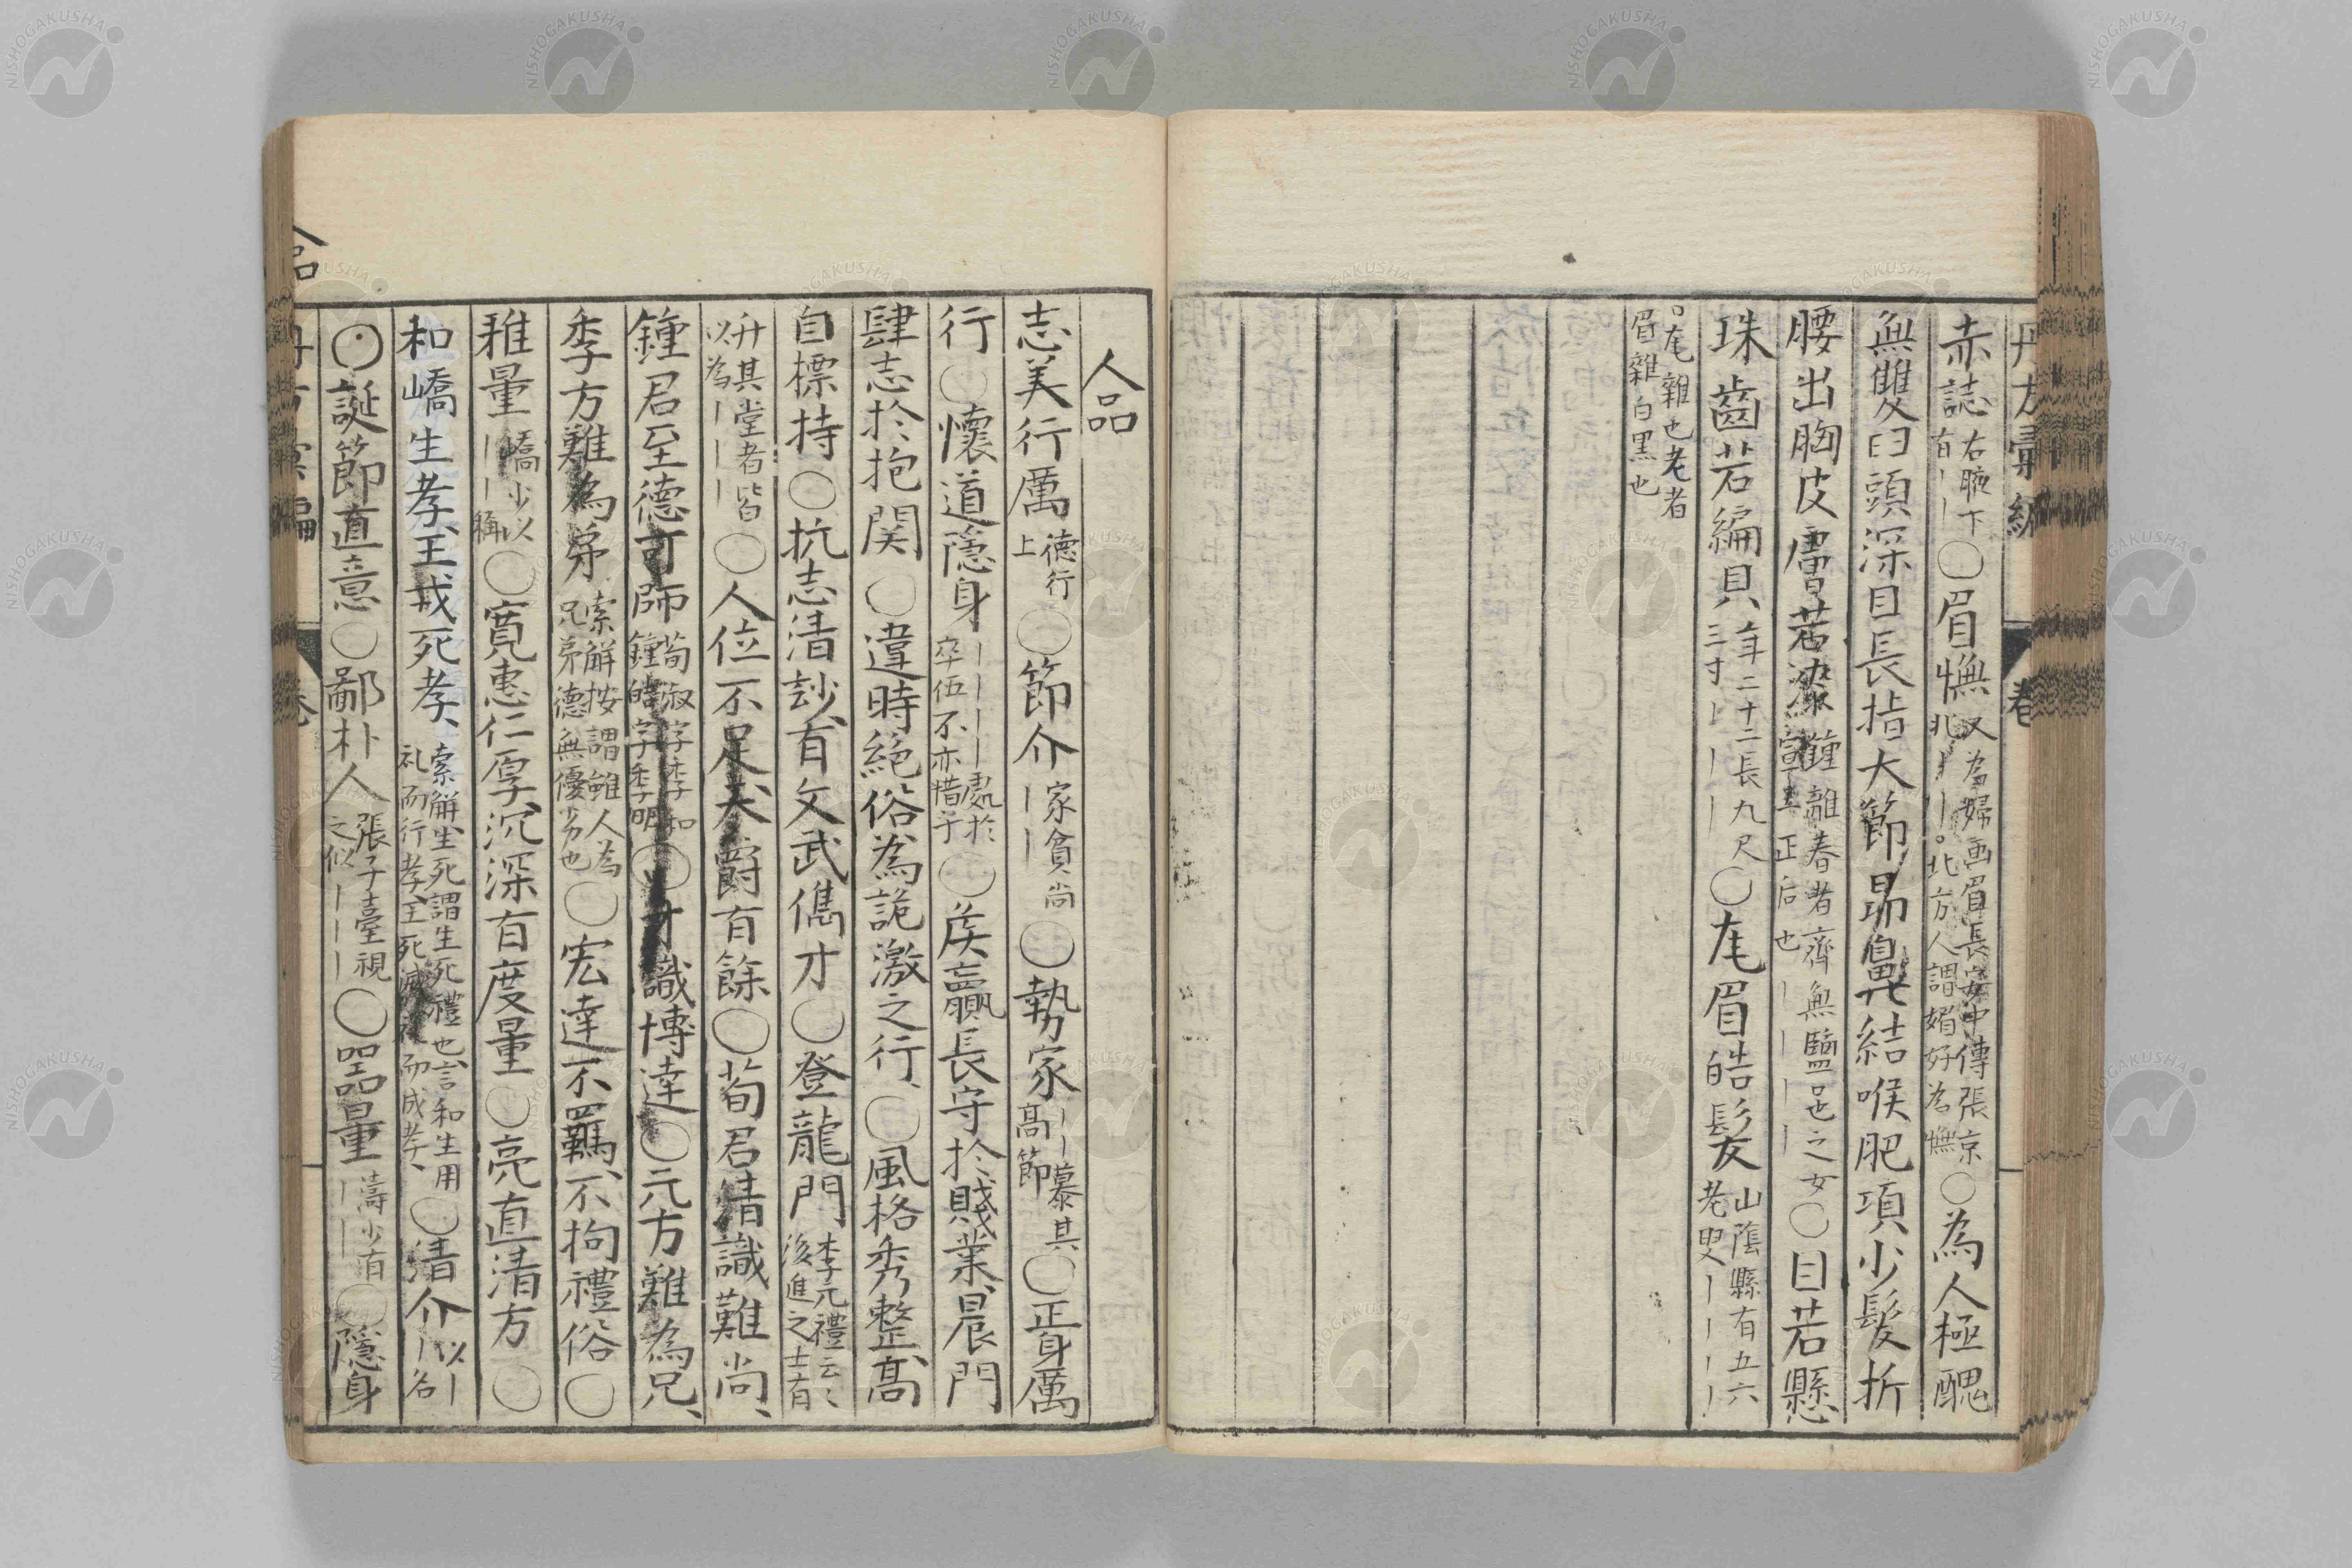 赤誌右腋下有｜｜〇眉憮又為婦画眉長安中傳張京北眉｜｜。北方人謂媚好為憮〇為人極醜
無雙臼頭深目長指大節昻鼻結喉肥項少髮折
腰出胸皮膚若漆鍾離春者齊無鹽邑之女宣王正后也｜｜｜｜〇目若懸
珠齒若編貝年二十二長九尺三寸｜｜｜〇尨眉皓髮山陰縣有五六老叟｜｜｜｜
尨雜也老者眉雜白黒也
人品
志美行厲德行上〇節介家貧尚｜｜〇勢家｜｜慕其高節〇正身厲
行〇懷道隱身｜｜｜｜處於卒伍不亦惜乎〇矦嬴長守於賤業、晨門
肆志於抱関〇違時絕俗為詭激之行、〇風格秀整、高
自標持〇抗志清玅、有文武儁才〇登龍門李元禮云〻後進之士有
升其堂者皆以為｜｜｜〇人位不足、天爵有餘〇荀君清識難尚、
鍾君至德可師荀淑字季和鍾皓字季明〇才識博達〇元方難為兄、
季方難為弟索解按謂雖人為兄弟德無優劣也〇宏達不羈、不拘禮俗〇
雅量嶠少以｜｜稱〇寛惠仁厚、沉深有度量〇亮直清方〇
和嶠生孝、王戎死孝、索解生死謂生死禮也、言和生用礼而行孝、王死滅禮而成孝、〇清介以｜｜名
〇誕節直意〇鄙朴人張子臺視之似｜｜｜〇器量濤少有｜｜〇隱身
人品